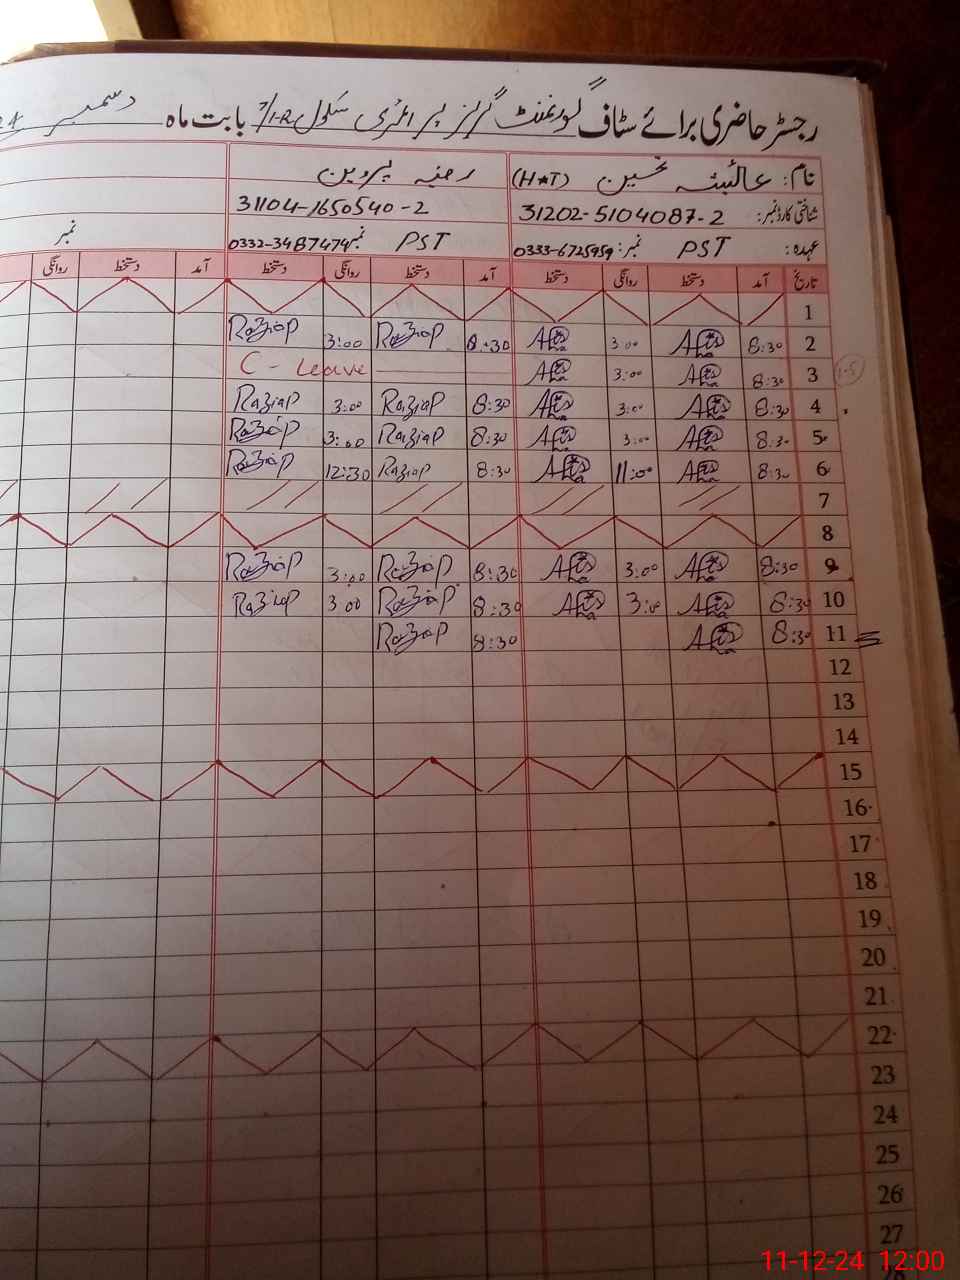 رجسٹر حاضری برائے سٹاف گورنمنٹ گرلز پرائمری سکول 7/1-R بابت ماہ دسمبر
نام: عائشہ تحسین (H★T) رضیہ پروین
شناختی کارڈ نمبر: 31202-5104087-2 31104-1650540-2
عہدہ: PST نمبر: 0333-6725959 PST نمبر 0332-3487474 نمبر
تاریخ آمد دستخط روانگی دستخط آمد دستخط روانگی دستخط آمد دستخط روانگی
1
2 8:30 3:00 8:30 RaziaP 3:00 RaziaP
3 8:30 3:00 C - Leave
4 8:30 3:00 8:30 RaziaP 3:00 RaziaP
5 8:30 3:00 8:30 RaziaP 3:00 RaziaP
6 8:30 11:00 8:30 RaziaP 12:30 RaziaP
7
8
9 8:30 3:00 8:30 RaziaP 3:00 RaziaP
10 8:30 3:00 8:30 RaziaP 3:00 RaziaP
11 8:30 8:30 RaziaP
12
13
14
15
16
17
18
19
20
21
22
23
24
25
26
27
11-12-24 12:00